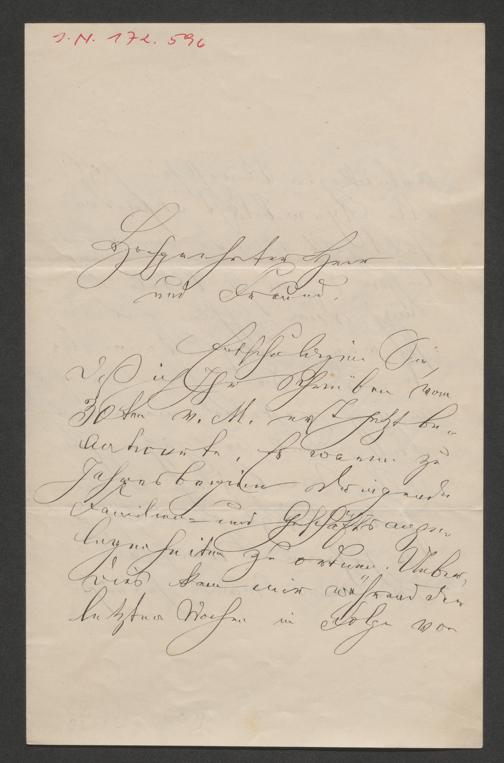 J. N. 172.596
Hochgeehrter Herr
und Freund.
Entschuldigen Sie,
daß ich Ihr Schreiben vom
30ten v. M. erst jetzt be-
antworte. Es waren zu
Jahresbeginn dringende
Familien- und Geschäftsange-
legenheiten zu ordnen. Ueber-
dies kam mir während der
letzten Wochen in Folge von